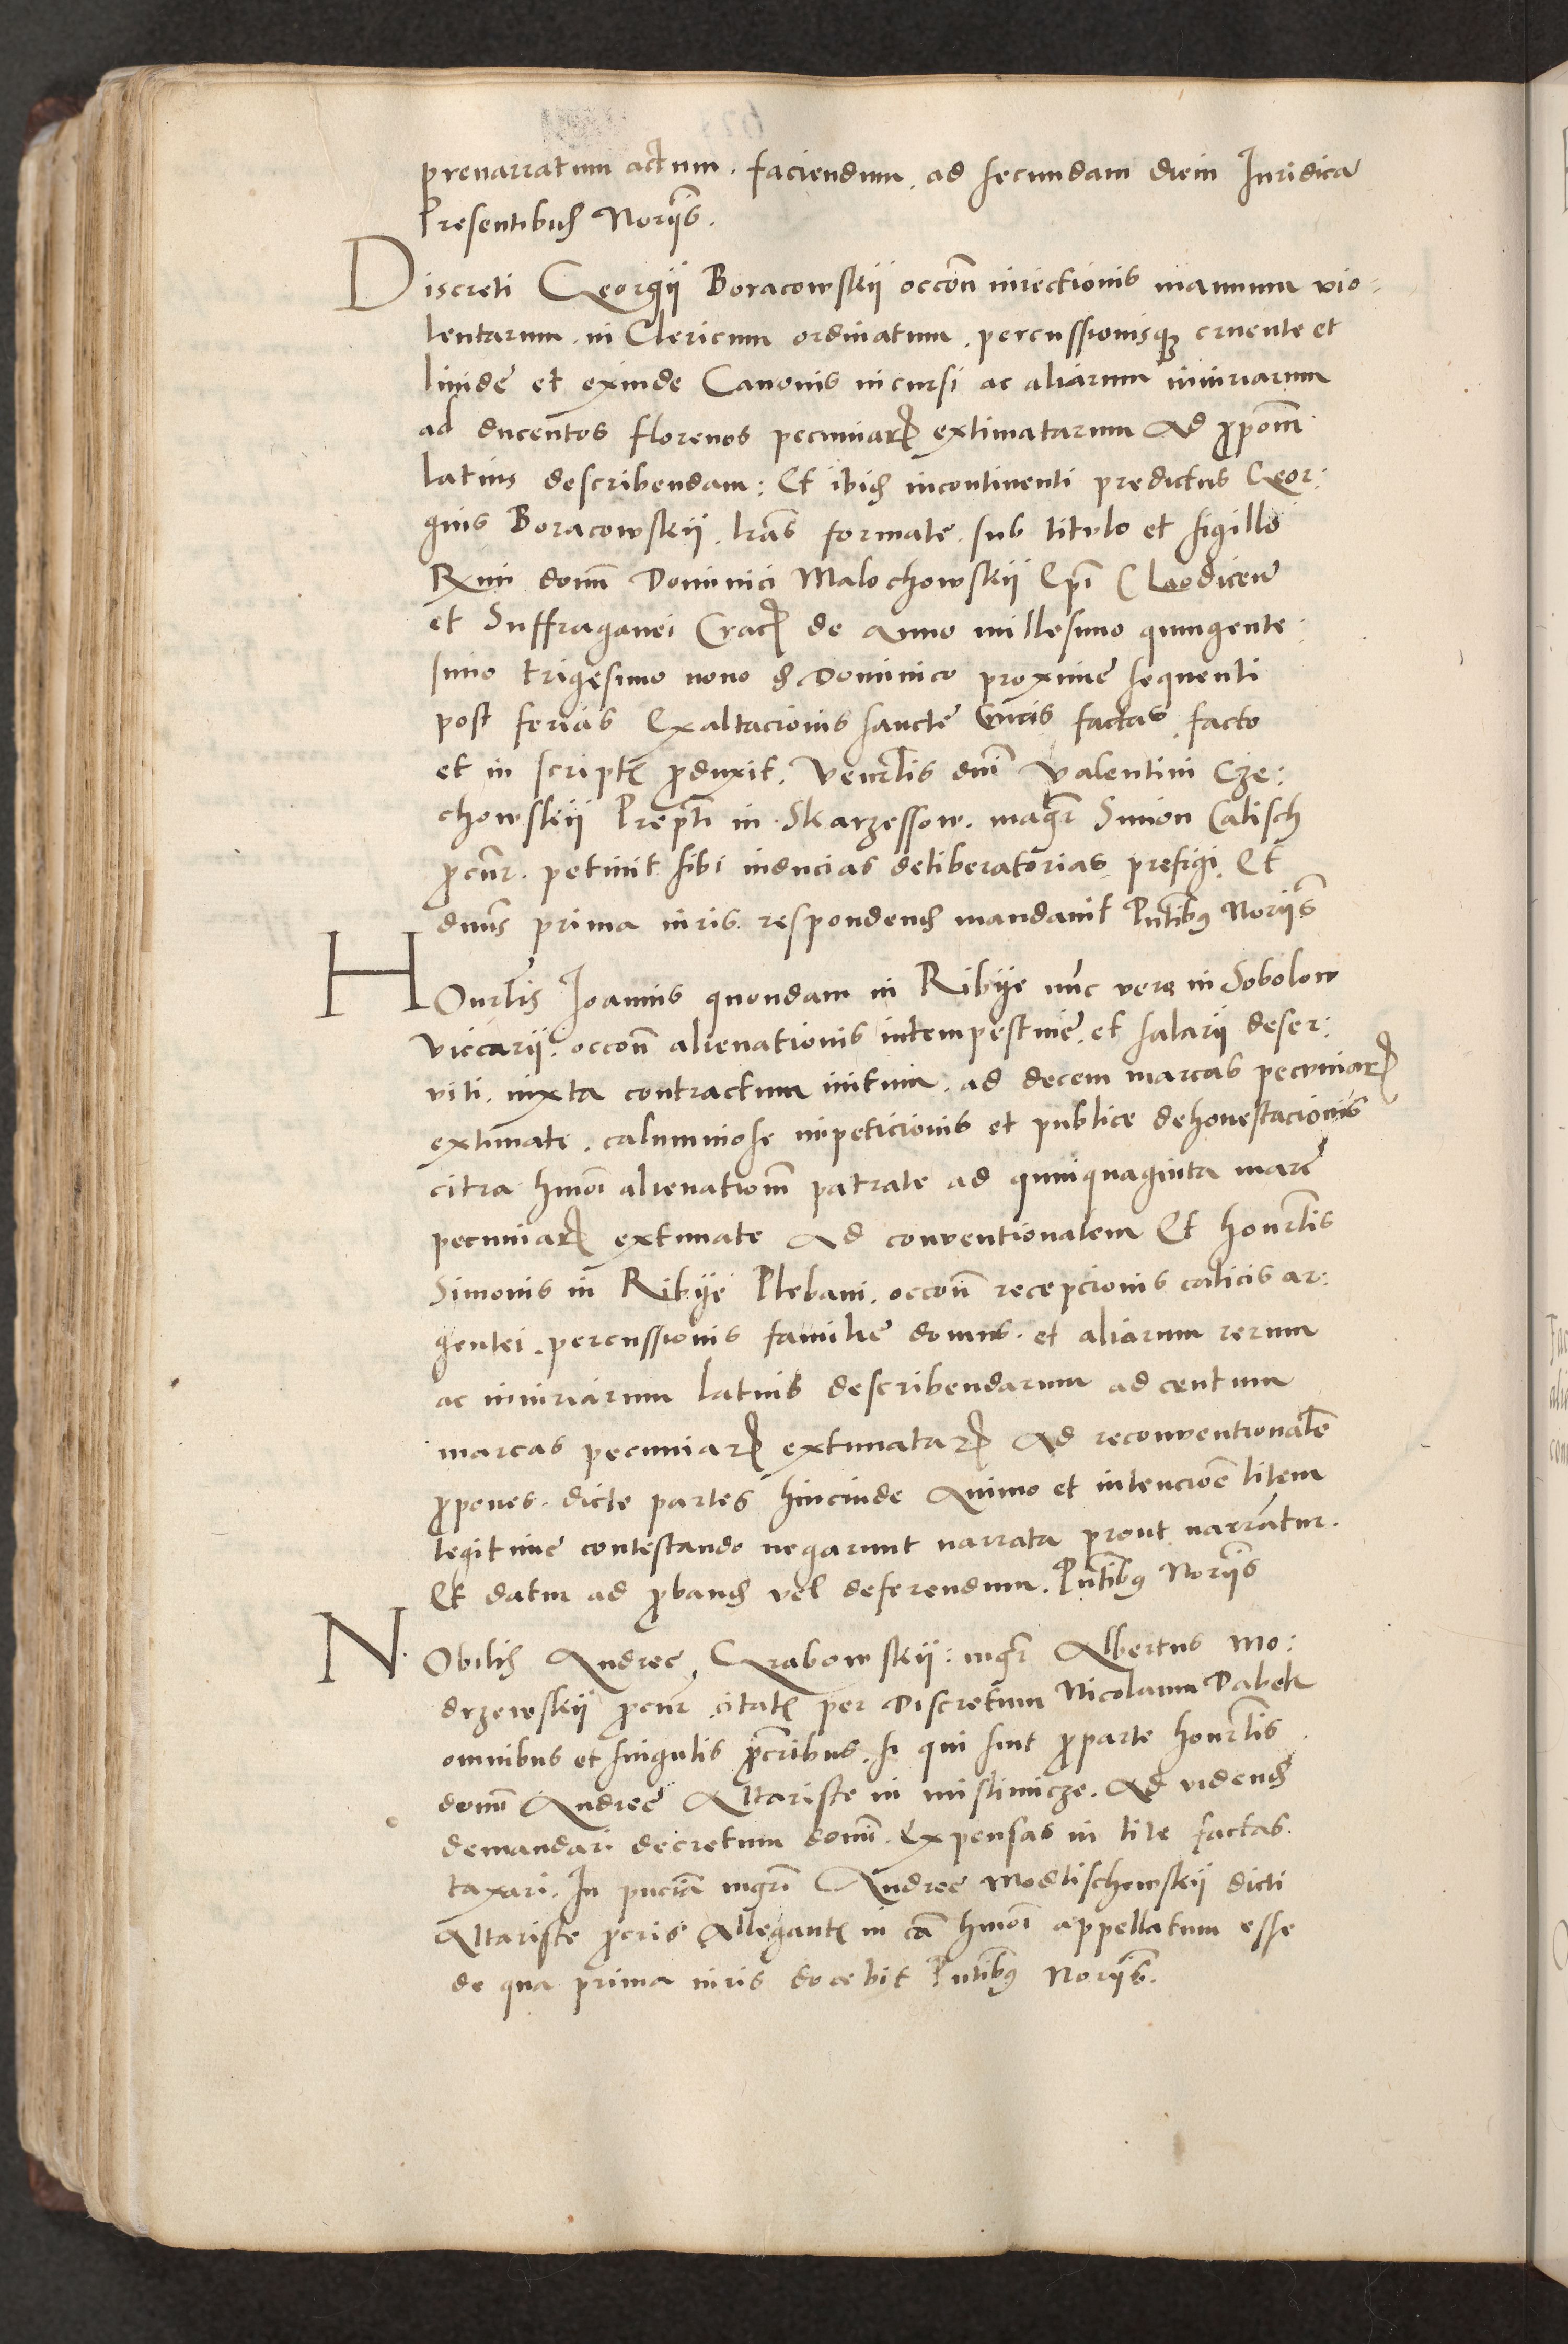 prenarratum actum. faciendum. ad secundam diem Iuridica
Presentibus Norijs.
Discreti Georgij Boracowskij occõne iniectionis manuum vio-
lentarum. in Clericum ordinatum. percussionisqȝ cruente et
liuide et exinde Canonis incursi ac aliarum iniuriarum
ad ducentos florenos pecuniarꝝ extimatarum Ad ꝓpõem
latius describendam: Et ibidem incontinenti predictus Geor:
gius Boracowskij. lrãs formate. sub titulo et sigillo
Rmi domi Dominici Malochowskij Epi Laodicen
et Suffraganei Cracꝝ de anno millesimo quingente:
simo trigesimo nono die Dominico proxime sequenti
post ferias Exaltacionis sancte Crucis factas. facto
et in scriptꝭ ꝓduxit. Venerlis dni Valentini Cze:
chowskij Prepti in Skarzessow. magr Simon Calisch
ꝓcur. petiuit sibi inducias deliberatorias prefigi. Et
dnus prima iuris respondendum mandauit Pntibus Norijs
HOnerlis Ioannis quondam in Ribije nunc vero in Sobolow
viccarij. occõne alienationis intempestiue. et salarij deser:
viti. iuxta contractum initum. ad decem marcas pecuniarꝝ
extimate. calumniose impeticionis et publice dehonestacionis
citra hmõi alienationem patrate ad quinquaginta marc
pecuniarꝝ extimate Ad conventionalem Et honerlis
Simonis in Ribije Plebani. occõne recepcionis calicis ar:
gentei. percussionis familie domus. et aliarum rerum
ac iniuriarum latius describendarum ad centum
marcas pecuniarꝝ extimatarꝝ Ad reconventionale
ꝓpones. dicte partes hincinde Animo et intencione litem
legitime contestando negarunt narrata prout narrantur.
Et datur ad ꝓband vel deferendum. Pntibus Norijs
NObilis Andree Grabowskij: mgr Albertus Mo:
drzewskij ꝓcur citatꝭ per Discretum Nicolaum Dabek
omnibus et singulis ꝓcribus. si qui sint ꝓparte honerlis
domi Andree Altariste in mislimicze. Ad vidend
demandari decretum domi. Expensas in lite factas.
taxari. In pncia mgri Andree Modlischewskij dicti
Altariste ꝓcris Allegantꝭ in ca hmõi appellatum esse
de qua prima iuris docebit Pntibus Norijs.